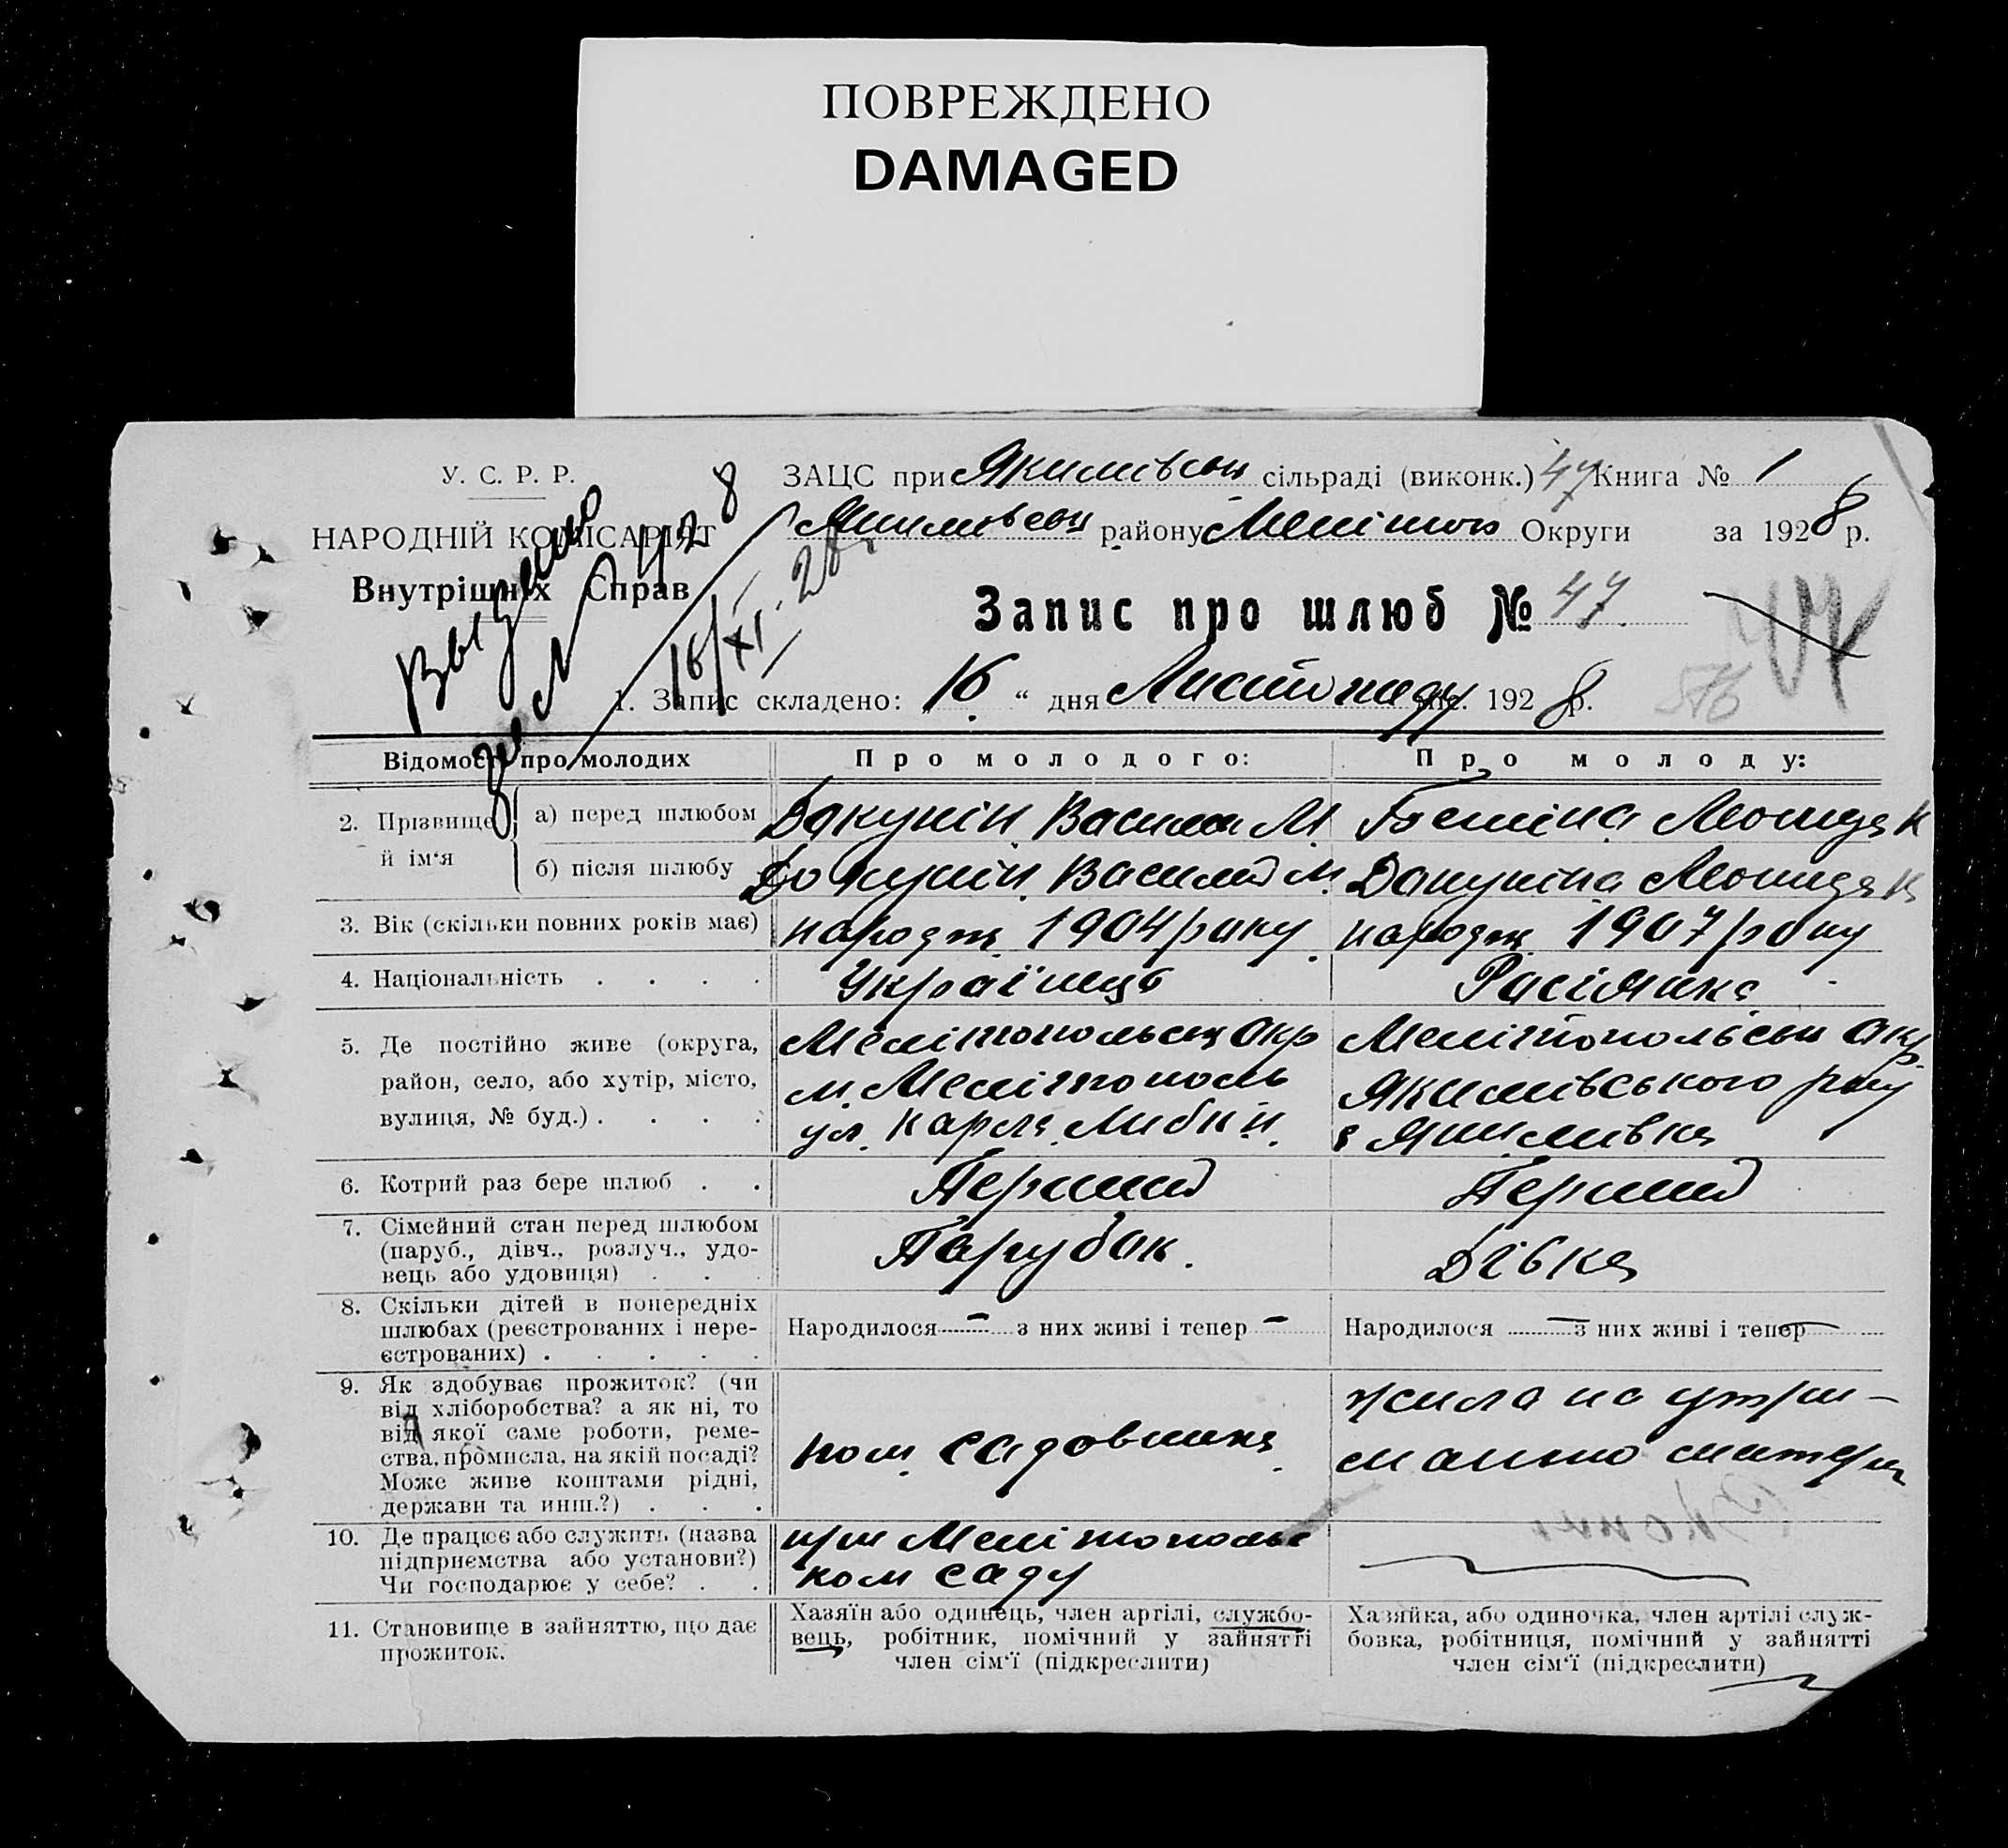 ПОВРЕЖДЕНО
DAMAGED
У. С. Р. Р.
НАРОДНІЙ КОМІСАРІЯТ
Внутрішніх Справ
ЗАЦС при Якимівськ сільраді (виконк.) 47 Книга № 1
Якимовськ району Мелітоп Округи за 1928 р.
Запис про шлюб № 47.
Выдано
428
16/XI. 28
1. Запис складено: „16“ дня Листопаду міс. 1928 р.
Відомості про молодих
Про молодого:
Про молоду:
2. Прізвище й ім‘я
а) перед шлюбом
Докунін Василь М
Леонида К
б) після шлюбу
Докунін Василий М.
Докуніна Леонида К
3. Вік (скільки повних років має)
народж 1904 року
народж 1907 року
4. Національність . . . .
Українець
Расіянка
5. Де постійно живе (округа,
район, село, або хутір, місто,
вулиця, № буд.) . . . .
Мелітопольськ Окр
м. Мелітополь
ул. Карла Либкн.
Мелітопольськ Окр
Якимівського р-ну
с Якимивка
6. Котрий раз бере шлюб . .
Перший
Перший
7. Сімейний стан перед шлюбом
(паруб., дівч., розлуч., удо-
вець або удовиця) . . .
Парубок.
Дівка
8. Скільки дітей в попередніх
шлюбах (реєстрованих і нере-
єстрованих) . . . . .
Народилося - з них живі і тепер -
Народилося - з них живі і тепер -
9. Як здобуває прожиток? (чи
від хліборобства? а як ні, то
від якої саме роботи, реме-
ства, промисла, на якій посаді?
Може живе коштами рідні,
держави та инш.?) . . .
пом. садовника
жила на утри-
манню матери
10. Де працює або служить (назва
підприємства або установи?)
Чи господарює у себе? . .
при Мелітопольс
ком саду
11. Становище в зайняттю, що дає
прожиток.
Хазяїн або одинець, член артілі, службо-
вець, робітник, помічний у зайнятті
член сім‘ї (підкреслити)
Хазяйка, або одиночка, член артілі служ-
бовка, робітниця, помічний у зайнятті
член сім‘ї (підкреслити)